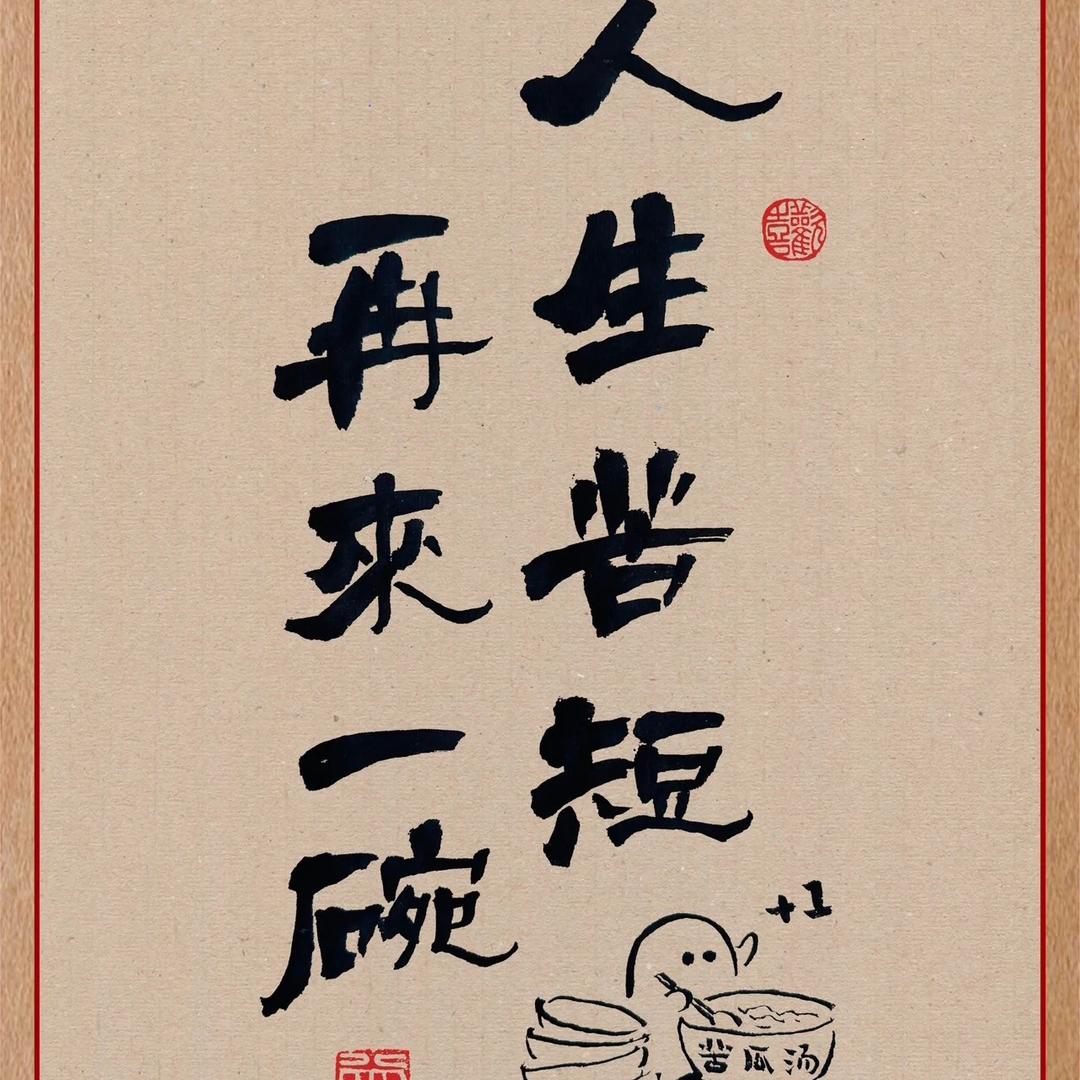 人生苦短
再來一碗
+1
苦瓜汤